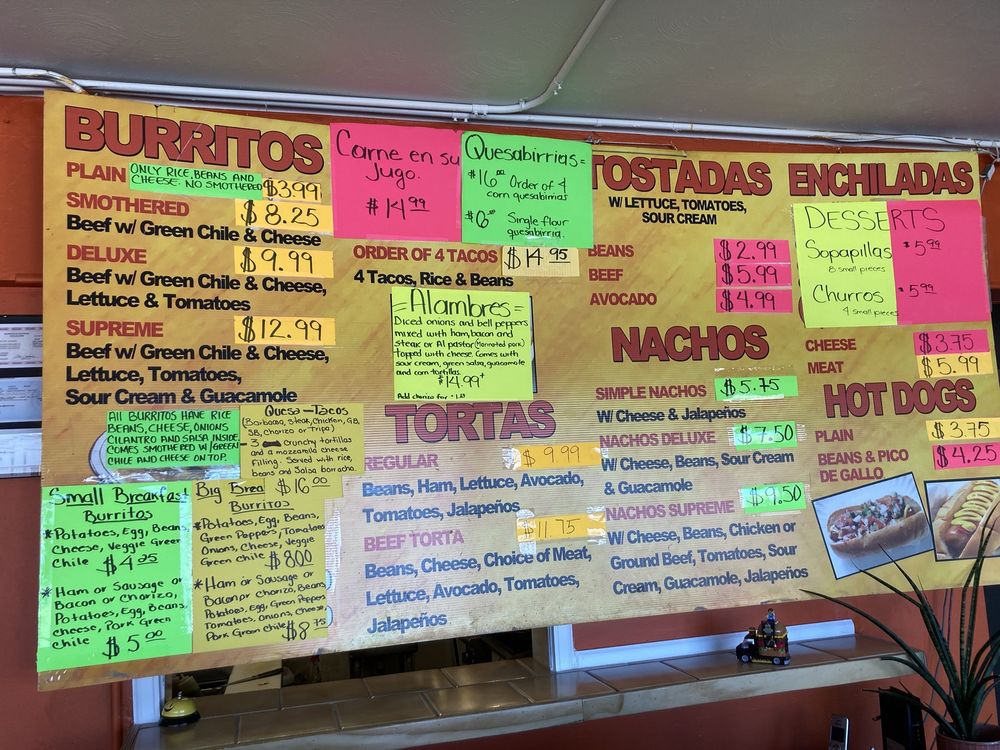 BURRITOS
PLAIN ONLY RICE, BEANS AND
CHEESE. NO SMOTHERED $3.99
SMOTHERED $8.25
Beef w/ Green Chile & Cheese
DELUXE $9.99
Beef w/ Green Chile & Cheese,
Lettuce & Tomatoes
SUPREME $12.99
Beef w/ Green Chile & Cheese,
Lettuce, Tomatoes,
Sour Cream & Guacamole
All BURRITOS HAVE RICE
BEANS, CHEESE, ONIONS
CILANTRO AND SALSA INSIDE
COMES SMOTHERED W/GREEN
CHILE AND CHEESE ON TOP.
Queso-Tacos
(Barbacoa, Steak, Chicken, GB,
SB, Chorizo or Tripa)
3 crunchy tortillas
and a mozzarella cheese
Filling. Served with rice,
beans and Salsa borracha.
$16.00
Small Breakfast
Burritos
*Potatoes, Egg, Beans,
Cheese, Veggie Green
Chile $4.25
*Ham or Sausage or
Bacon or Chorizo,
Potatoes, Egg, Beans,
cheese, Pork Green
chile $5.00
Big Brea
Burritos
*Potatoes, Egg, Beans,
Green Peppers, Tomatoes
Onions, Cheese, Veggie
Green chile $8.00
*Ham or Sausage or
Bacon or Chorizo, Beans
Potatoes, Egg, Green Peppers
Tomatoes, Onions, Cheese,
Pork Green Chile $8.75
Carne en su
Jugo.
$14.99
Quesabirrias=
$16.00 Order of 4
corn quesabirrias
$6.00 Single flour
quesabirria.
ORDER OF 4 TACOS $14.95
4 Tacos, Rice & Beans
=Alambres=
Diced onions and bell peppers
mixed with ham, bacon and
steak or Al pastor (Marinated pork)
topped with cheese. Comes with
sour cream, green salsa, guacamole
and corn tortillas.
$14.99+
Add chorizo for
TORTAS
REGULAR $9.99
Beans, Ham, Lettuce, Avocado,
Tomatoes, Jalapeños
BEEF TORTA $11.75
Beans, Cheese, Choice of Meat,
Lettuce, Avocado, Tomatoes,
Jalapeños
TOSTADAS
W/ LETTUCE, TOMATOES,
SOUR CREAM
BEANS $2.99
BEEF $5.99
AVOCADO $4.99
NACHOS
SIMPLE NACHOS $5.75
W/ Cheese & Jalapeños
NACHOS DELUXE $7.50
W/ Cheese, Beans, Sour Cream
& Guacamole
NACHOS SUPREME $9.50
W/ Cheese, Beans, Chicken or
Ground Beef, Tomatoes, Sour
Cream, Guacamole, Jalapeños
ENCHILADAS
DESSERTS
Sopapillas $5.99
8 small pieces
Churros $5.99
4 small pieces
CHEESE $3.75
MEAT $5.99
HOT DOGS
PLAIN $3.75
BEANS & PICO
DE GALLO $4.25